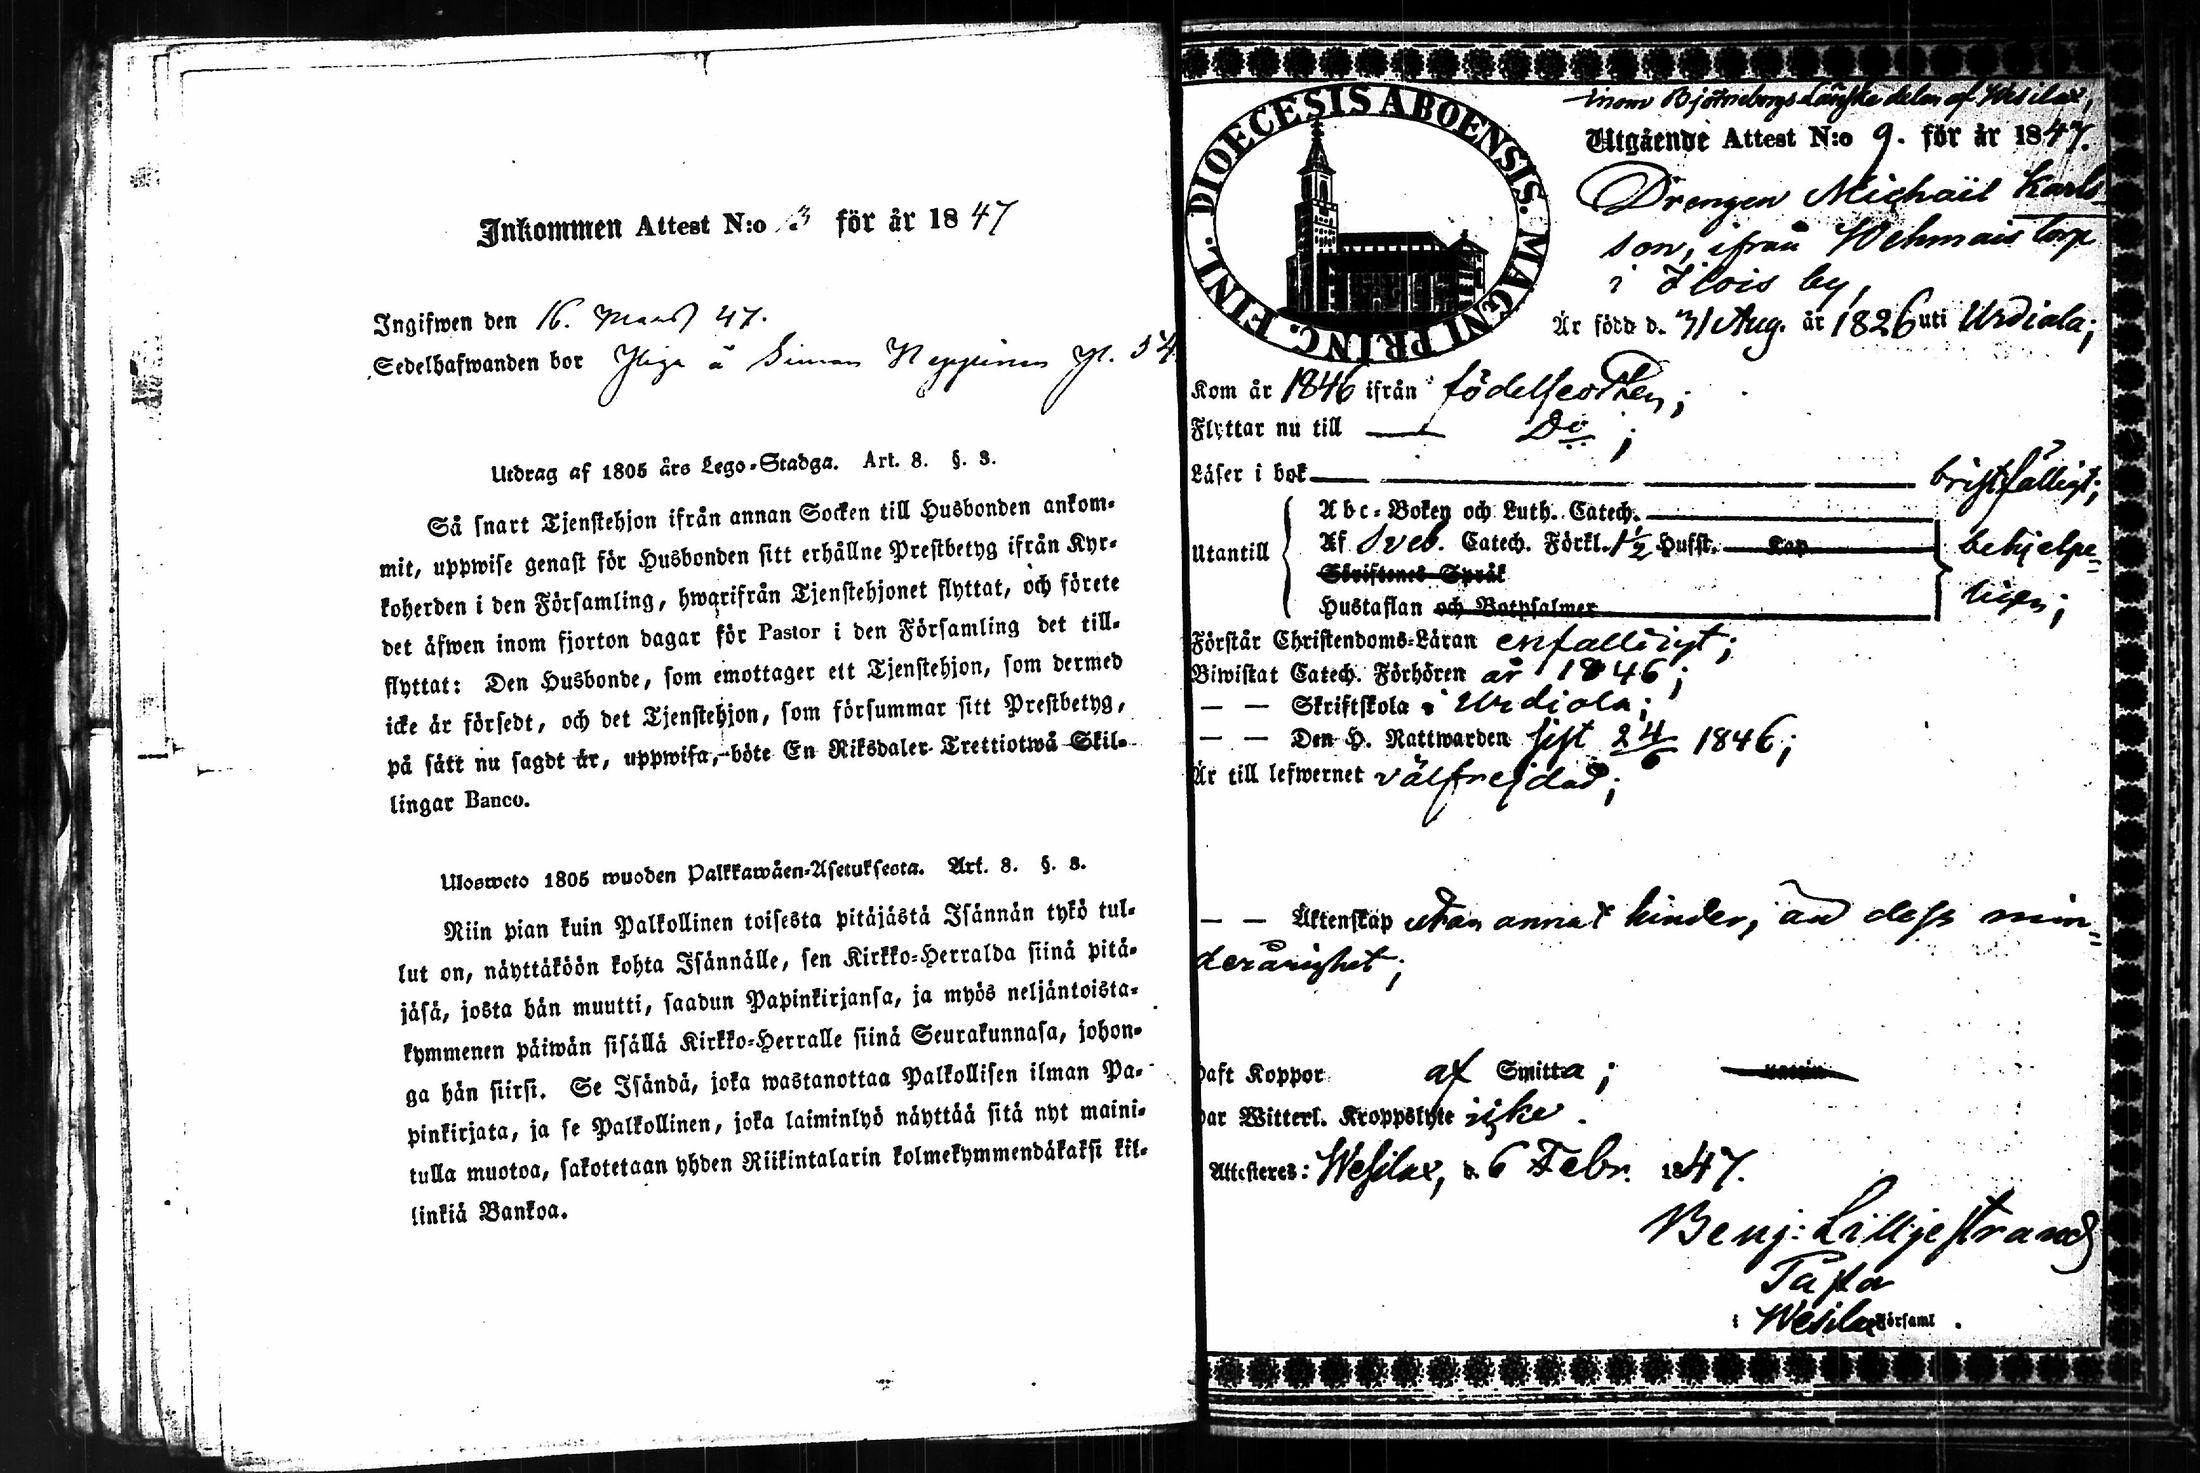 Inkommen Attest N:o 3 för år 1847
Ingifwen den 16. Mars 47.
Sedelhafwanden bor å Simon
Utdrag af 1805 års Lego-Stadga. Art. 8. §. 3.
Så snart Tjenstehjon ifrån annan Socken till Husbonden ankom-
mit, uppwise genast för Husbonden sitt erhållne Prestbetyg ifrån Kyr-
koherden i den Församling, hwarifrån Tjenstehjonet flyttat, och förete
det äfwen inom fjorton dagar för Pastor i den Församling det till-
flyttat: Den Husbonde, som emottager ett Tjenstehjon, som dermed
icke är försedt, och det Tjenstehjon, som försummar sitt Prestbetyg,
på sätt nu sagdt är, uppwisa, böte En Riksdaler Trettiotwå Skil-
lingar Banco.
Ulosweto 1805 wuoden Palkkawäen-Asetuksesta. Art. 8. §. 3.
Niin pian kuin Palkollinen toisesta pitäjästä Isännän tykö tul-
lut on, näyttäköön kohta Isännälle, sen Kirkko-Herralda siinä pitä-
jäsä, josta hän muutti, saadun Papinkirjansa, ja myös neljäntoista-
kymmenen päiwän sisällä Kirkko-Herralle siinä Seurakunnasa, johon-
ga hän siirsi. Se Isändä, joka wastanottaa Palkollisen ilman Pa-
pinkirjata, ja se Palkollinen, joka laiminlyö näyttää sitä nyt maini-
tulla muotoa, sakotetaan yhden Riikintalarin kolmekymmendäkaksi kil-
linkiä Bankoa.
DIOECESIS ABOENSIS. MAGNI PRINC. FINL.
inom Björneborgs Länske delen af Wesilax,
Utgående Attest N:o 9. för år 1847.
Drengen Michaël Karls
son, ifrån Wehmais torp
i by,
Är född d. 31 Aug. år 1826 uti Urdiala;
Kom år 1846 ifrån födelseorten;
Flyttar nu till Do;
Läser i bok bristfälligt;
Abc-Boken och Luth. Catech.
Utantill Af Sveb. Catech. Förkl. 1½ Hufst. Kap behjelpe-
Skriftenes Språk
Hustaflan och Botpsalmer ligen;
Förstår Christendoms-Läran enfalldigt;
Biwistat Catech. Förhören år 1846;
— — Skriftskola i Urdiala;
— — Den H. Nattwarden sist 24/6 1846;
Är till lefwernet välfrejdad;
— — Äktenskap utan annat hinder, än dess min-
derårighet;
Haft Koppor af Smitta;
Har Witterl. Kroppslyte icke.
Attesteres: Wesilax, d. 6 Febr. 1847.
Benj: Lilljestrand
Pastor
i Wesilax Församl.